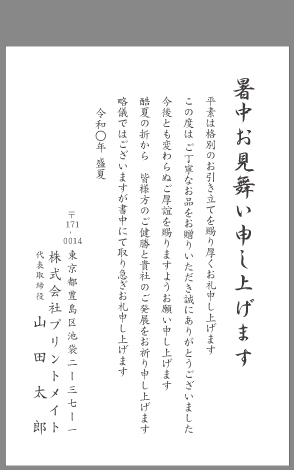 暑中お見舞い申し上げます
平素は格別のお引き立てを賜り厚くお礼申し上げます
この度は ご丁寧なお品をお贈りいただき誠にありがとうございました
今後とも変わらぬご厚誼を賜りますようお願い申し上げます
酷夏の折から 皆様方のご健勝と貴社のご発展をお祈り申し上げます
略儀ではございますが書中にて取り急ぎお礼申し上げます
令和〇年 盛夏
〒171-0014
東京都豊島区池袋二ー三七ー一
株式会社プリントメイト
代表取締役 山田太郎